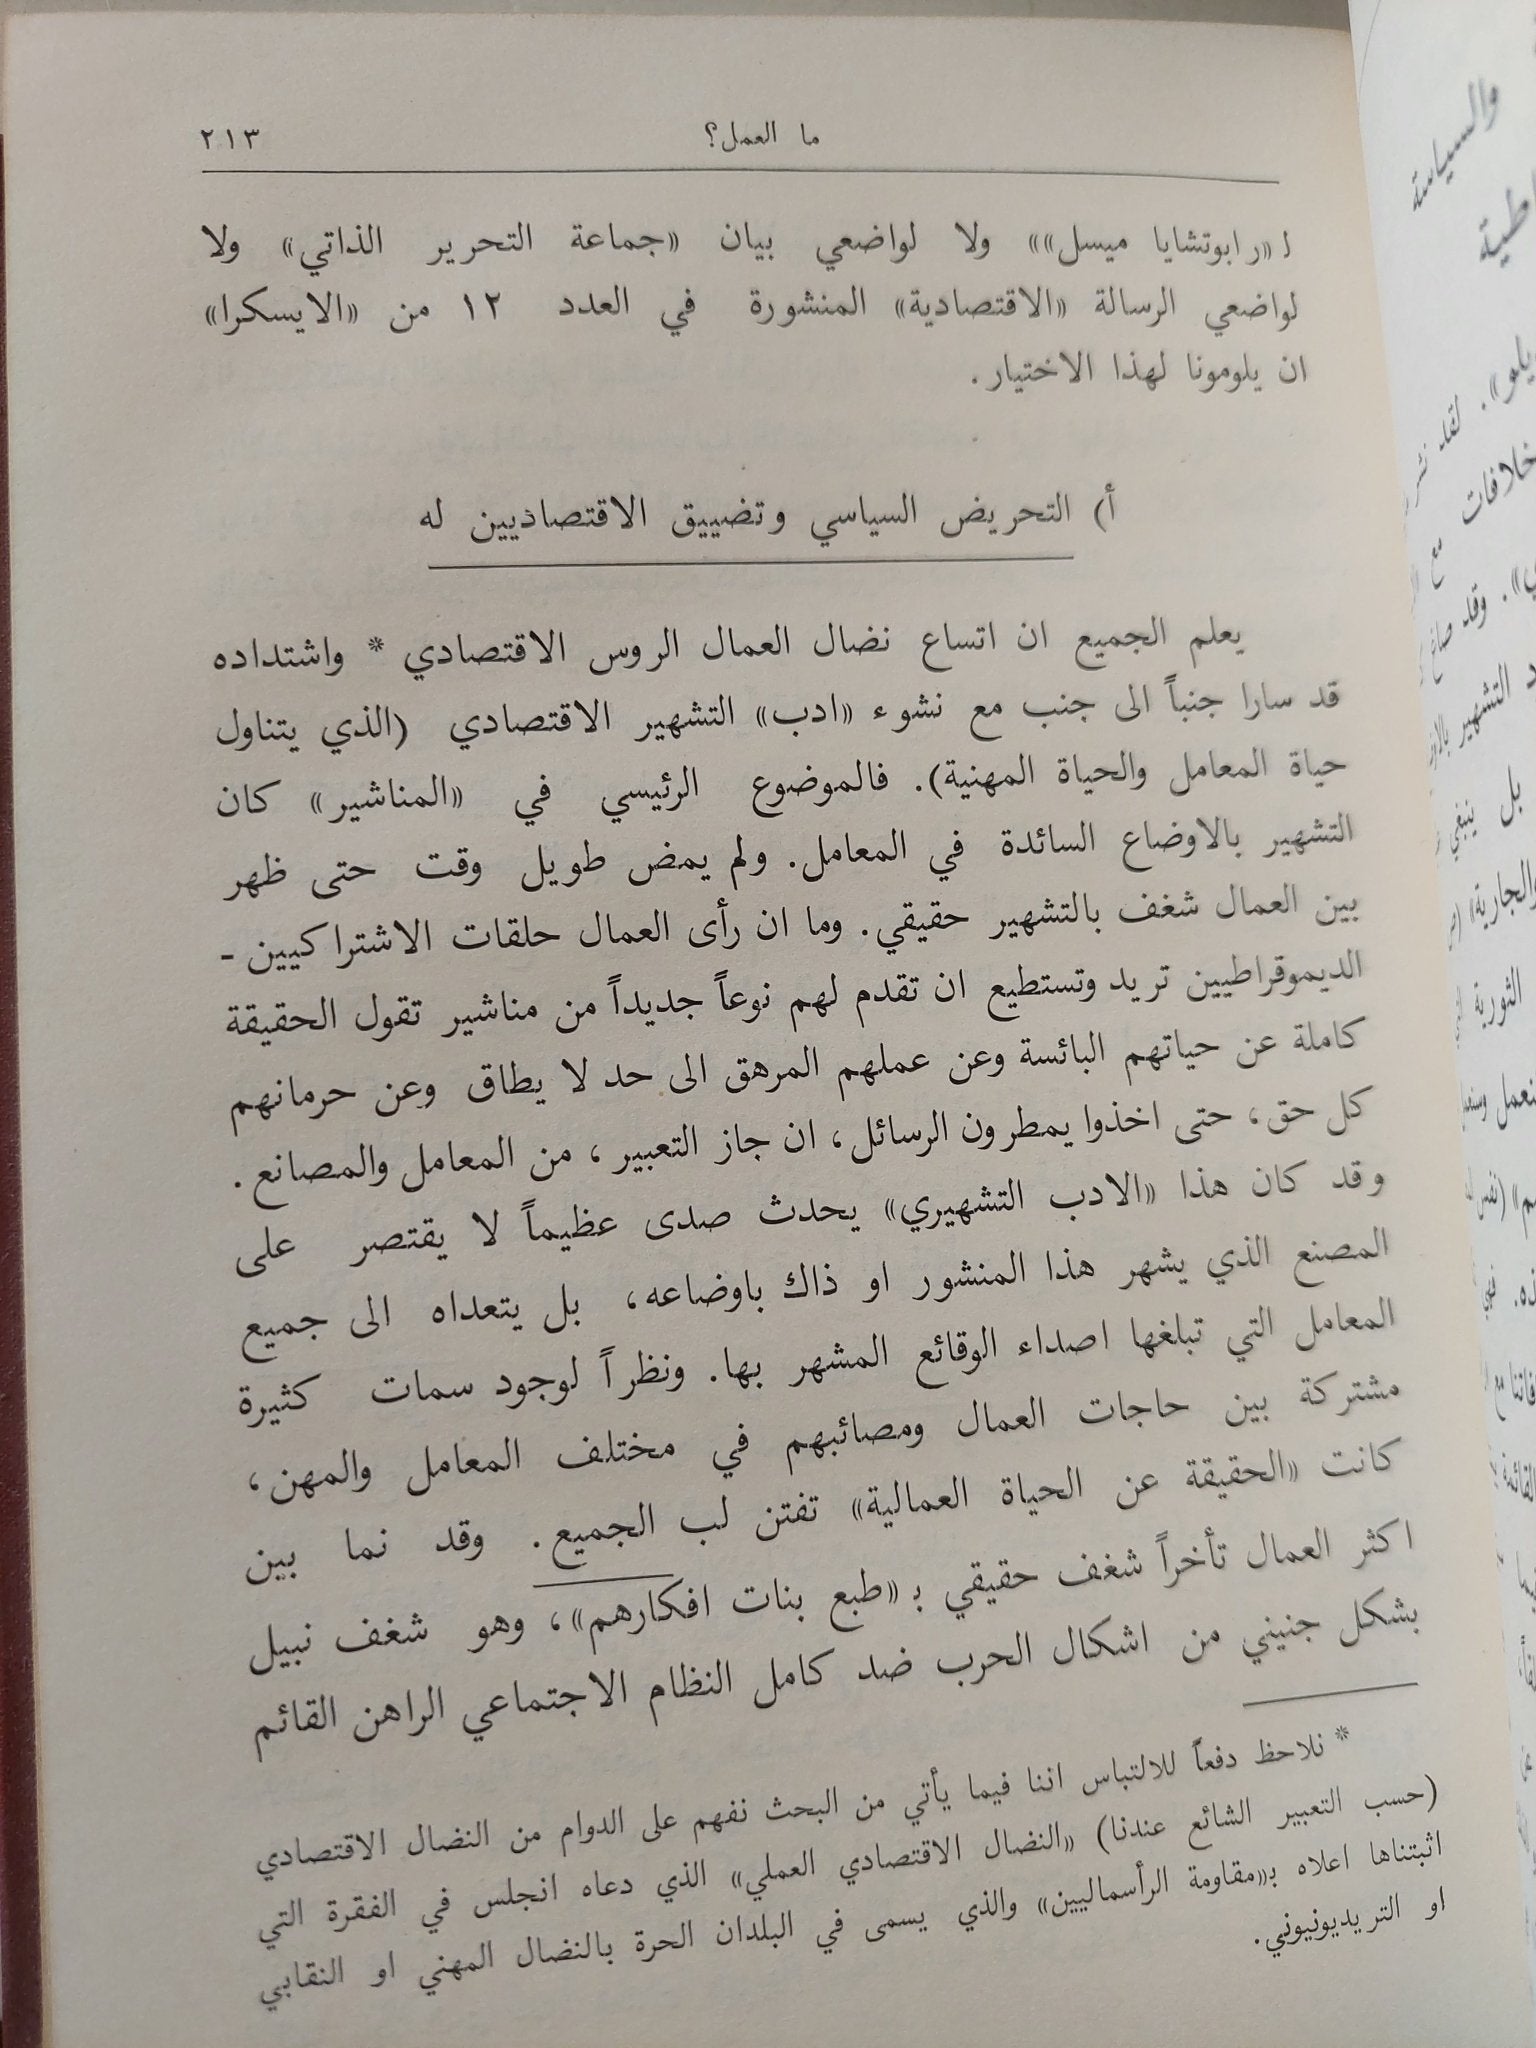 ما العمل؟ ٢١٣
لـ «رابوتشايا ميسل»» ولا لواضعي بيان «جماعة التحرير الذاتي» ولا
لواضعي الرسالة «الاقتصادية» المنشورة في العدد ١٢ من «الايسكرا»
ان يلومونا لهذا الاختيار.
أ) التحريض السياسي وتضييق الاقتصاديين له
يعلم الجميع ان اتساع نضال العمال الروس الاقتصادي * واشتداده
قد سارا جنباً الى جنب مع نشوء «ادب» التشهير الاقتصادي (الذي يتناول
حياة المعامل والحياة المهنية). فالموضوع الرئيسي في «المناشير» كان
التشهير بالاوضاع السائدة في المعامل. ولم يمض طويل وقت حتى ظهر
بين العمال شغف بالتشهير حقيقي. وما ان رأى العمال حلقات الاشتراكيين -
الديموقراطيين تريد وتستطيع ان تقدم لهم نوعاً جديداً من مناشير تقول الحقيقة
كاملة عن حياتهم البائسة وعن عملهم المرهق الى حد لا يطاق وعن حرمانهم
كل حق، حتى اخذوا يمطرون الرسائل، ان جاز التعبير، من المعامل والمصانع.
وقد كان هذا «الادب التشهيري» يحدث صدى عظيماً لا يقتصر على
المصنع الذي يشهر هذا المنشور او ذاك باوضاعه، بل يتعداه الى جميع
المعامل التي تبلغها اصداء الوقائع المشهر بها. ونظراً لوجود سمات كثيرة
مشتركة بين حاجات العمال ومصائبهم في مختلف المعامل والمهن،
كانت «الحقيقة عن الحياة العمالية» تفتن لب الجميع. وقد نما بين
اكثر العمال تأخراً شغف حقيقي بـ «طبع بنات افكارهم»، وهو شغف نبيل
بشكل جنيني من اشكال الحرب ضد كامل النظام الاجتماعي الراهن القائم
* نلاحظ دفعاً للالتباس اننا فيما يأتي من البحث نفهم على الدوام من النضال الاقتصادي
(حسب التعبير الشائع عندنا) «النضال الاقتصادي العملي» الذي دعاه انجلس في الفقرة التي
اثبتناها اعلاه بـ«مقاومة الرأسماليين» والذي يسمى في البلدان الحرة بالنضال المهني او النقابي
او التريديونيوني.
والسياسة
لقد نشر
خلافات مع
وقد صاغ
التشهير
بل ينبغي
والجارية»
الثورية